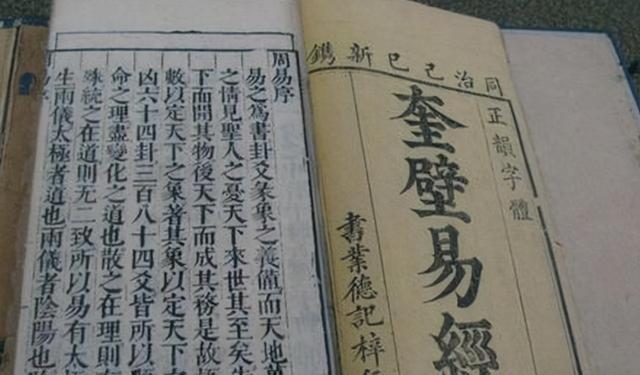 同治己巳新鐫
正韻字體
奎壁易經
書業德記梓
周易序
易之爲書卦爻彖象之義備而天地萬
之情見聖人之憂天下來世其至矣先
下而開其物後天下而成其務是故極
數以定天下之象著其象以定天下
凶六十四卦三百八十四爻皆所以順
命之理盡變化之道也散之在理則有
殊統之在道則无二致所以易有太
生兩儀太極者道也兩儀者陰陽也